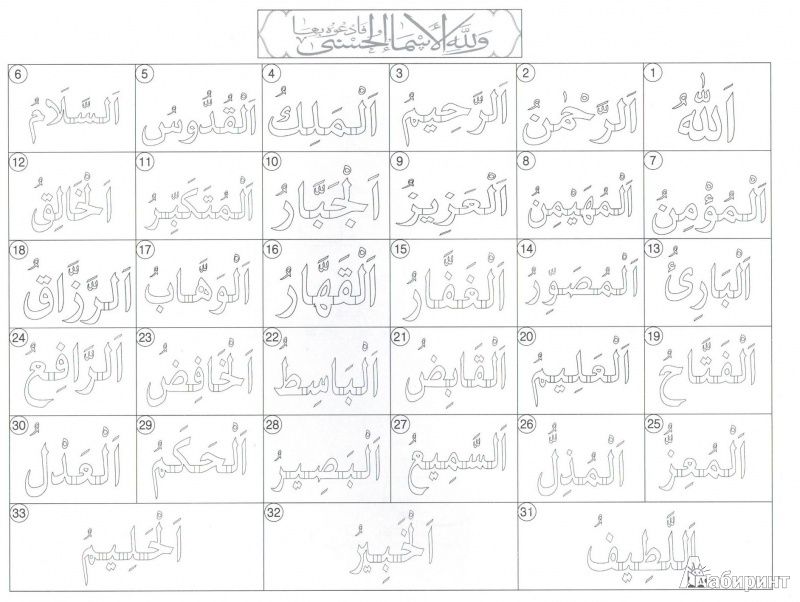 وَلِلّٰهِ الْأَسْمَاءُ الْحُسْنٰى فَادْعُوهُ بِهَا
1 اَللّٰهُ 2 اَلرَّحْمٰنُ 3 اَلرَّحِيمُ 4 اَلْمَلِكُ 5 اَلْقُدُّوسُ 6 اَلسَّلَامُ
7 اَلْمُؤْمِنُ 8 اَلْمُهَيْمِنُ 9 اَلْعَزِيزُ 10 اَلْجَبَّارُ 11 اَلْمُتَكَبِّرُ 12 اَلْخَالِقُ
13 اَلْبَارِئُ 14 اَلْمُصَوِّرُ 15 اَلْغَفَّارُ 16 اَلْقَهَّارُ 17 اَلْوَهَّابُ 18 اَلرَّزَّاقُ
19 اَلْفَتَّاحُ 20 اَلْعَلِيمُ 21 اَلْقَابِضُ 22 اَلْبَاسِطُ 23 اَلْخَافِضُ 24 اَلرَّافِعُ
25 اَلْمُعِزُّ 26 اَلْمُذِلُّ 27 اَلسَّمِيعُ 28 اَلْبَصِيرُ 29 اَلْحَكَمُ 30 اَلْعَدْلُ
31 اَللَّطِيفُ 32 اَلْخَبِيْرُ 33 اَلْحَلِيمُ
Лабиринт